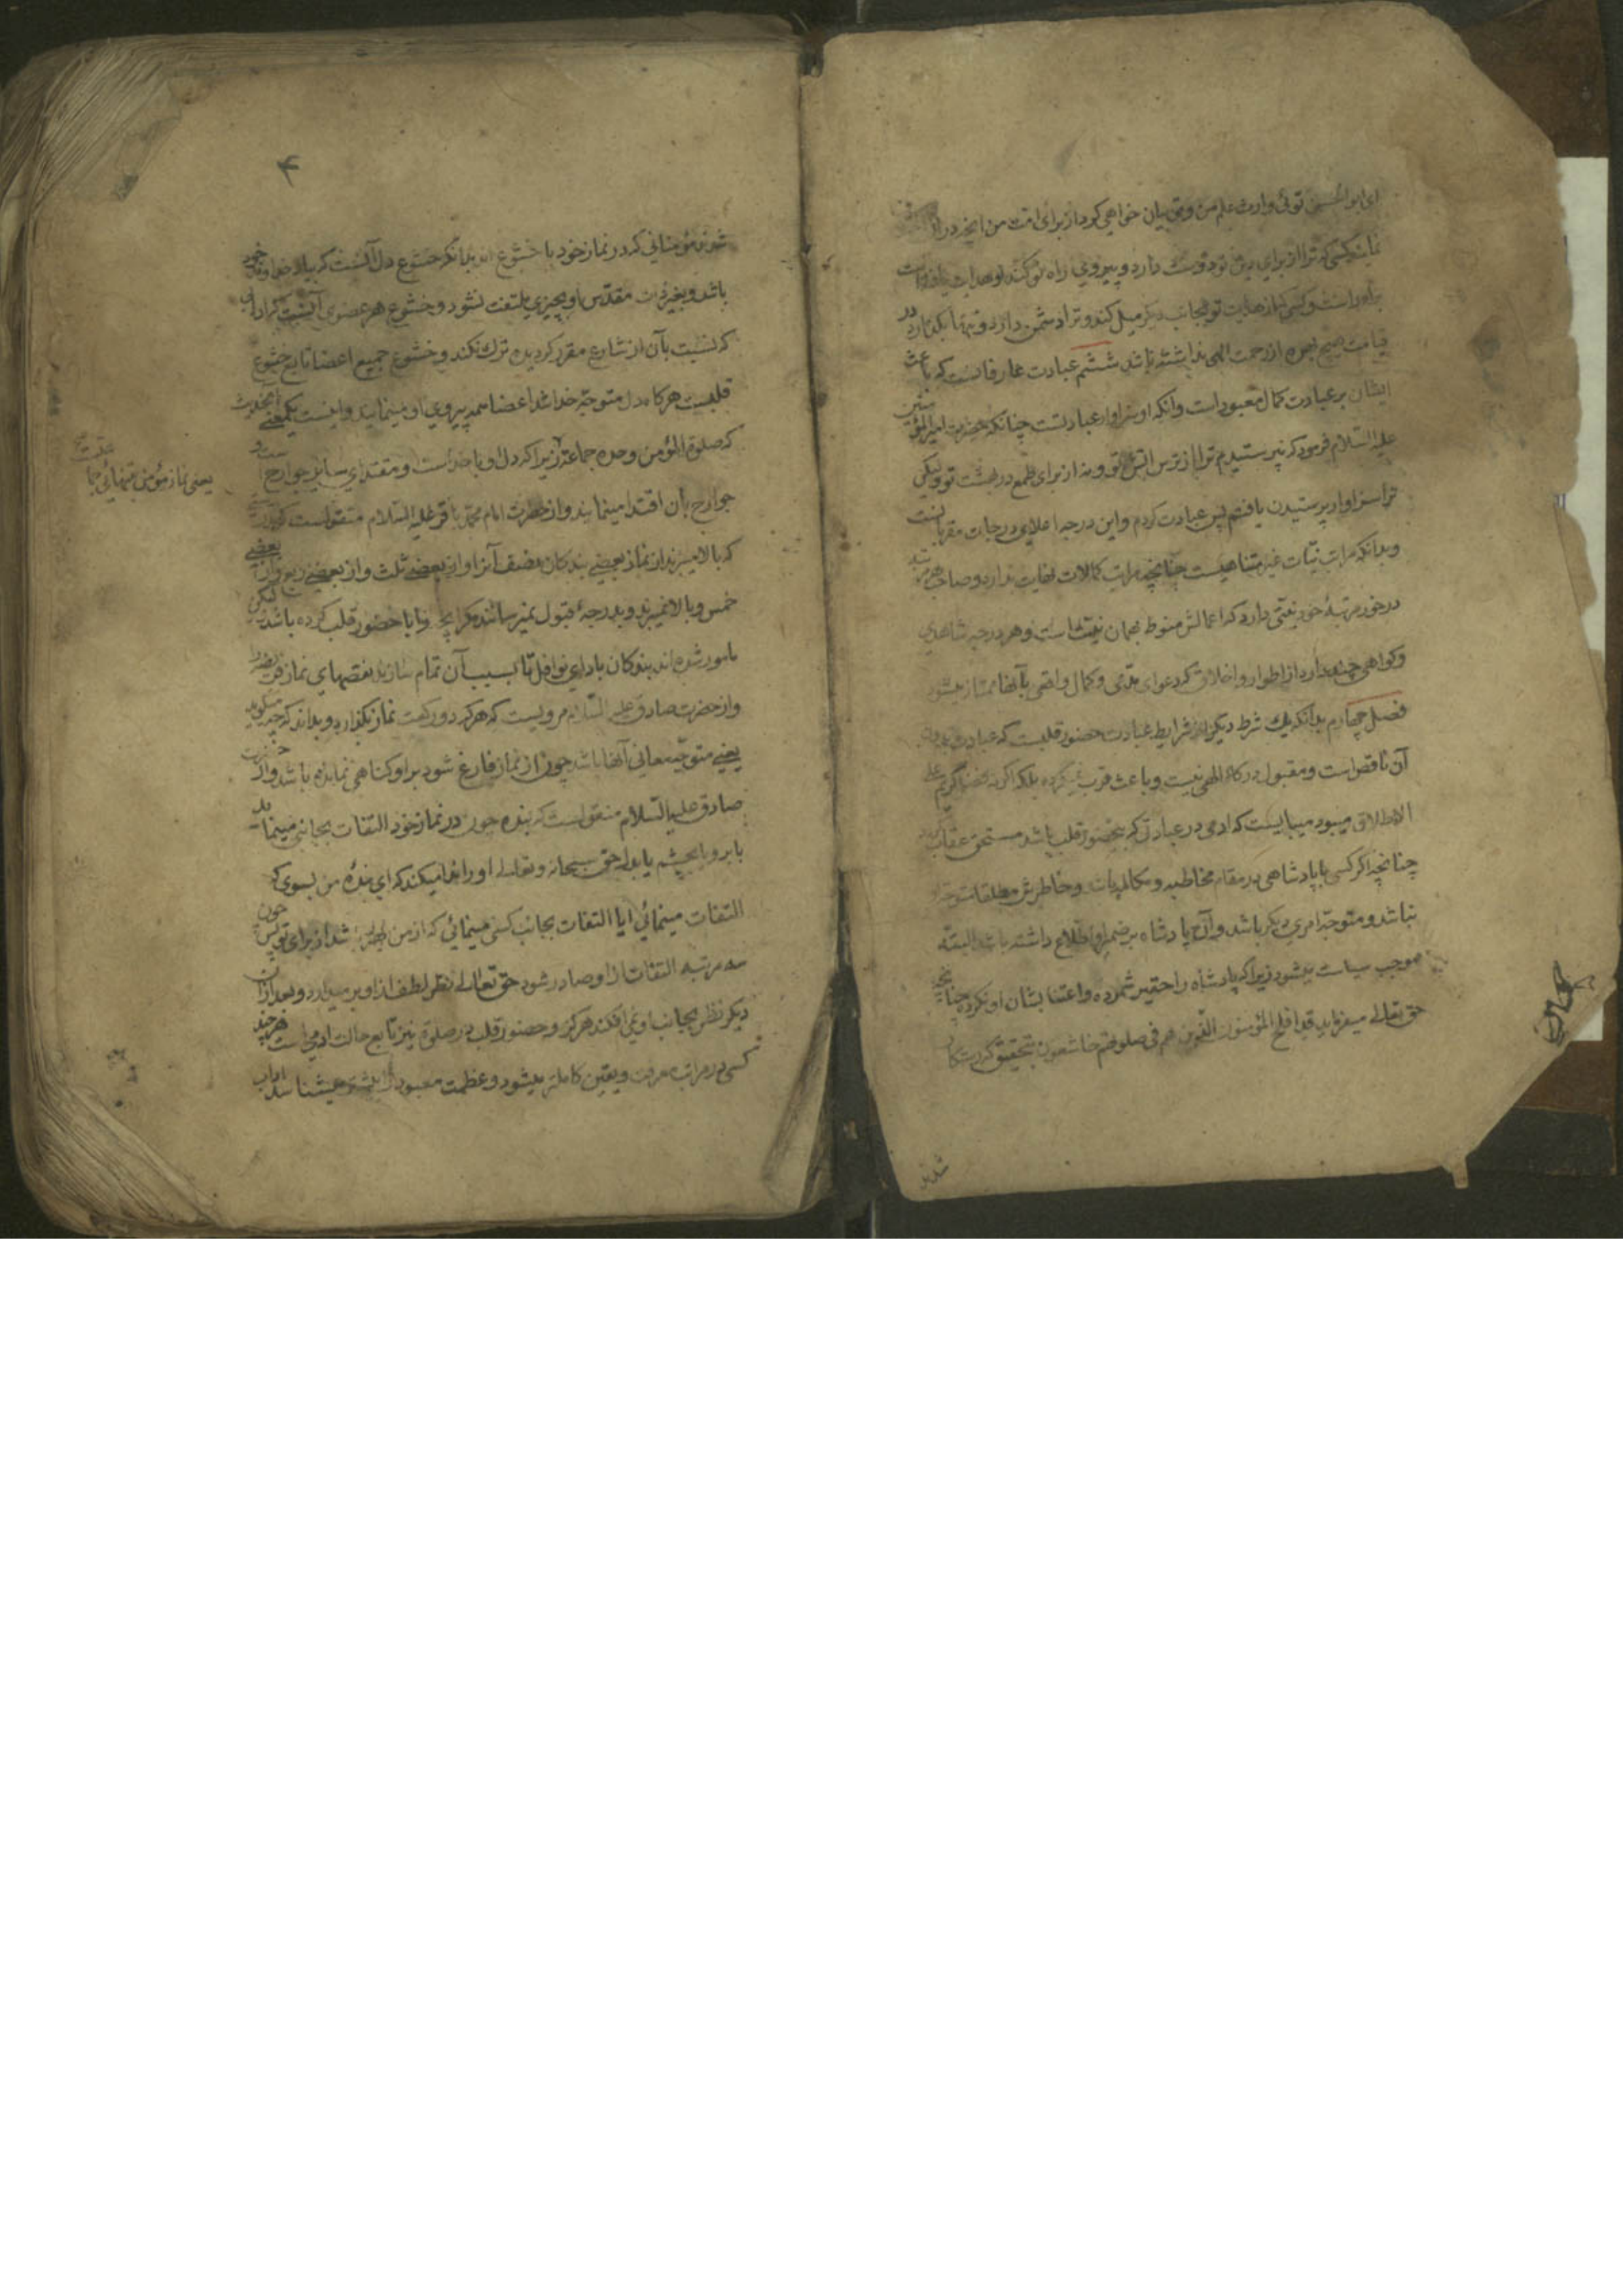 ای ابو الحسن توئی وارث علم من و تو بیان خواهی کرد از برای امت من آنچه در آن
نمایند کسی که ترا از برای دین تو دوست دارد و پیروی راه تو کند او هدایت یافته است
براه راست و کسی که از هدایت تو بجانب دیگر میل کند و ترا دشمن دارد و تنها بگذارد در
قیامت هیچ بهره از رحمت الهی نداشته باشد ششم عبادت عارفانست که باعث
ایشان بر عبادت کمال معبود است و آنکه او سزاوار عبادتست چنانکه حضرت امیر المؤمنین
علیه السلام فرمود که نپرستیدم ترا از ترس آتش تو و نه از برای طمع در بهشت تو و لیکن
ترا سزاوار پرستیدن یافتم پس عبادت کردم و این درجه اعلای درجات مقربانست
و بدانکه مراتب نیّات غیر متناهیست چنانچه مراتب کمالات نهایت ندارد و صاحب هر مرتبه
در خور مرتبۀ خود نیّتی دارد که اعمالش منوط بهمان نیّت است و هر درجه شاهدی
و گواهی چند دارد از اطوار و اخلاق که دعوای مدّعی و کمال واقعی بآنها ممتاز میشود
فصل چهارم بدانکه یک شرط دیگر از شرایط عبادت حضور قلبست که عبادت بدون
آن ناقص است و مقبول درگاه الهی نیست و باعث قرب نمیگردد بلکه اگر نه فضل کریم علی
الاطلاق میبود میبایست که آدمی در عبادتی که بیحضور قلب باشد مستحق عقاب گردد
چنانچه اگر کسی با پادشاهی در مقام مخاطبه و مکالمه باشد و خاطرش مطلقا متوجه او
نباشد و متوجّه امری دیگر باشد و آن پادشاه بر ضمیر او اطلاع داشته باشد البته
موجب سیاست میشود زیرا که پادشاه را حقیر شمرده و اعتنا بشان او نکرده چنانچه
حق تعالی میفرماید قد افلح المؤمنون الذین هم فی صلوتهم خاشعون بتحقیق که رستگار
شدند
۴
شدند مؤمنانی که در نماز خود با خشوع اند بدانکه خشوع دل آنست که بیاد خداوند خود
باشد و بغیر ذات مقدّس او بچیزی ملتفت نشود و خشوع هر عضوی آنست که آدابی
که نسبت بآن از شارع مقرر گردیده ترک نکند و خشوع جمیع اعضا تابع خشوع
قلبست هرگاه دل متوجّه خدا شد اعضا همه پیروی او مینمایند و اینست یکمعنی این حدیث
که صلوة المؤمن وحده جماعة زیرا که دل او با خداست و مقتدای سایر جوارح است و
جوارح بآن اقتدا مینمایند و از حضرت امام محمد باقر علیه السلام منقولست که بدرستی
که بالا میبرند از نماز بعضی بندگان نصف آنرا و از بعضی ثلث و از بعضی ربع و از بعضی
خمس و بالا نمیبرند و بدرجۀ قبول نمیرسانند مگر آنچه را با حضور قلب کرده باشد لیکن
مامور شده اند بندگان بادای نوافل تا بسبب آن تمام سازند نقصهای نماز فریضه را
و از حضرت صادق علیه السلام مرویست که هر که دو رکعت نماز بگذارد و بداند که چه میگوید
یعنی متوجّه معانی آنها باشد چون از نماز فارغ شود بر او گناهی نمانده باشد و از حضرت
صادق علیه السلام منقولست که بنده چون در نماز خود التفات بجانبی مینماید
یا برو یا بچشم یا بدل حق سبحانه و تعالی او را ندا میکند که ای بندۀ من بسوی که
التفات مینمائی آیا التفات بجانب کسی مینمائی که از من بهتر باشد از برای تو پس چون
سه مرتبه التفات از او صادر شود حق تعالی نظر لطف از او بر میدارد و بعد از آن
دیگر نظر بجانب او نمی افکند هرگز و حضور قلب در صلوة نیز تابع حالت آدمی است هرچند
کسی در مراتب معرفت و یقین کاملتر میشود و عظمت معبود را بیشتر میشناسد آداب
یعنی نماز مؤمن تنهائی جماعتست